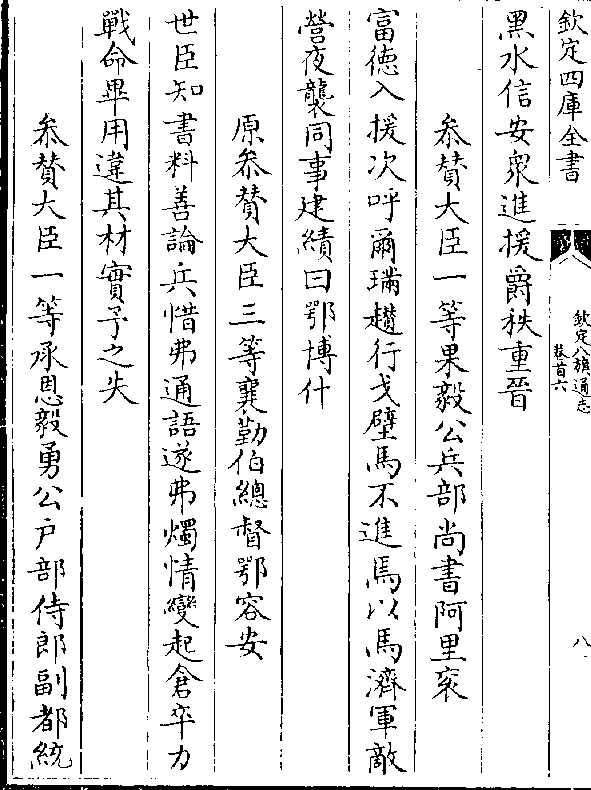 欽定四庫全書
欽定八旗通志
卷首六
八
黑水信安衆進援爵秩重晉
叅賛大臣一等果毅公兵部尚書阿里衮
富徳入援次呼爾璊趲行戈壁馬不進馬以馬濟軍敵
營夜襲同事建績曰鄂博什
原叅賛大臣三等襄勤伯總督鄂容安
世臣知書料善論兵惜弗通語遂弗燭情變起倉卒力
戰命畢用違其材實予之失
叅賛大臣一等承恩毅勇公户部侍郎副都統